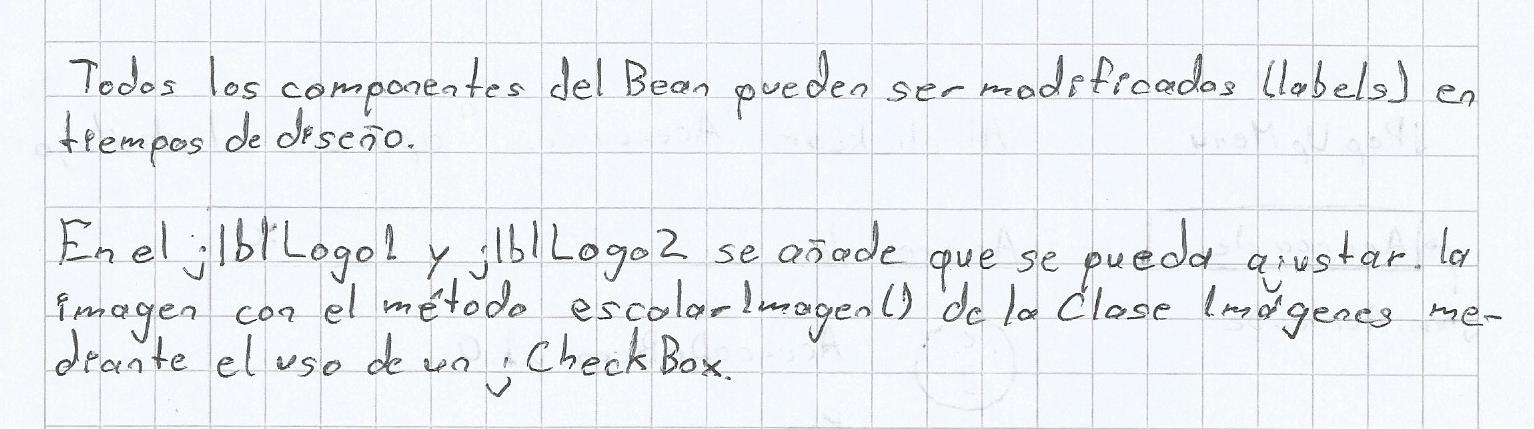 Todos los componentes del Bean pueden ser modificados (labels) en
tiempos de diseño.
En el jlblLogo1 y jlblLogo2 se añade que se pueda ajustar. la
imagen con el método escalarImagen() de la Clase Imágenes me-
diante el uso de un jCheckBox.